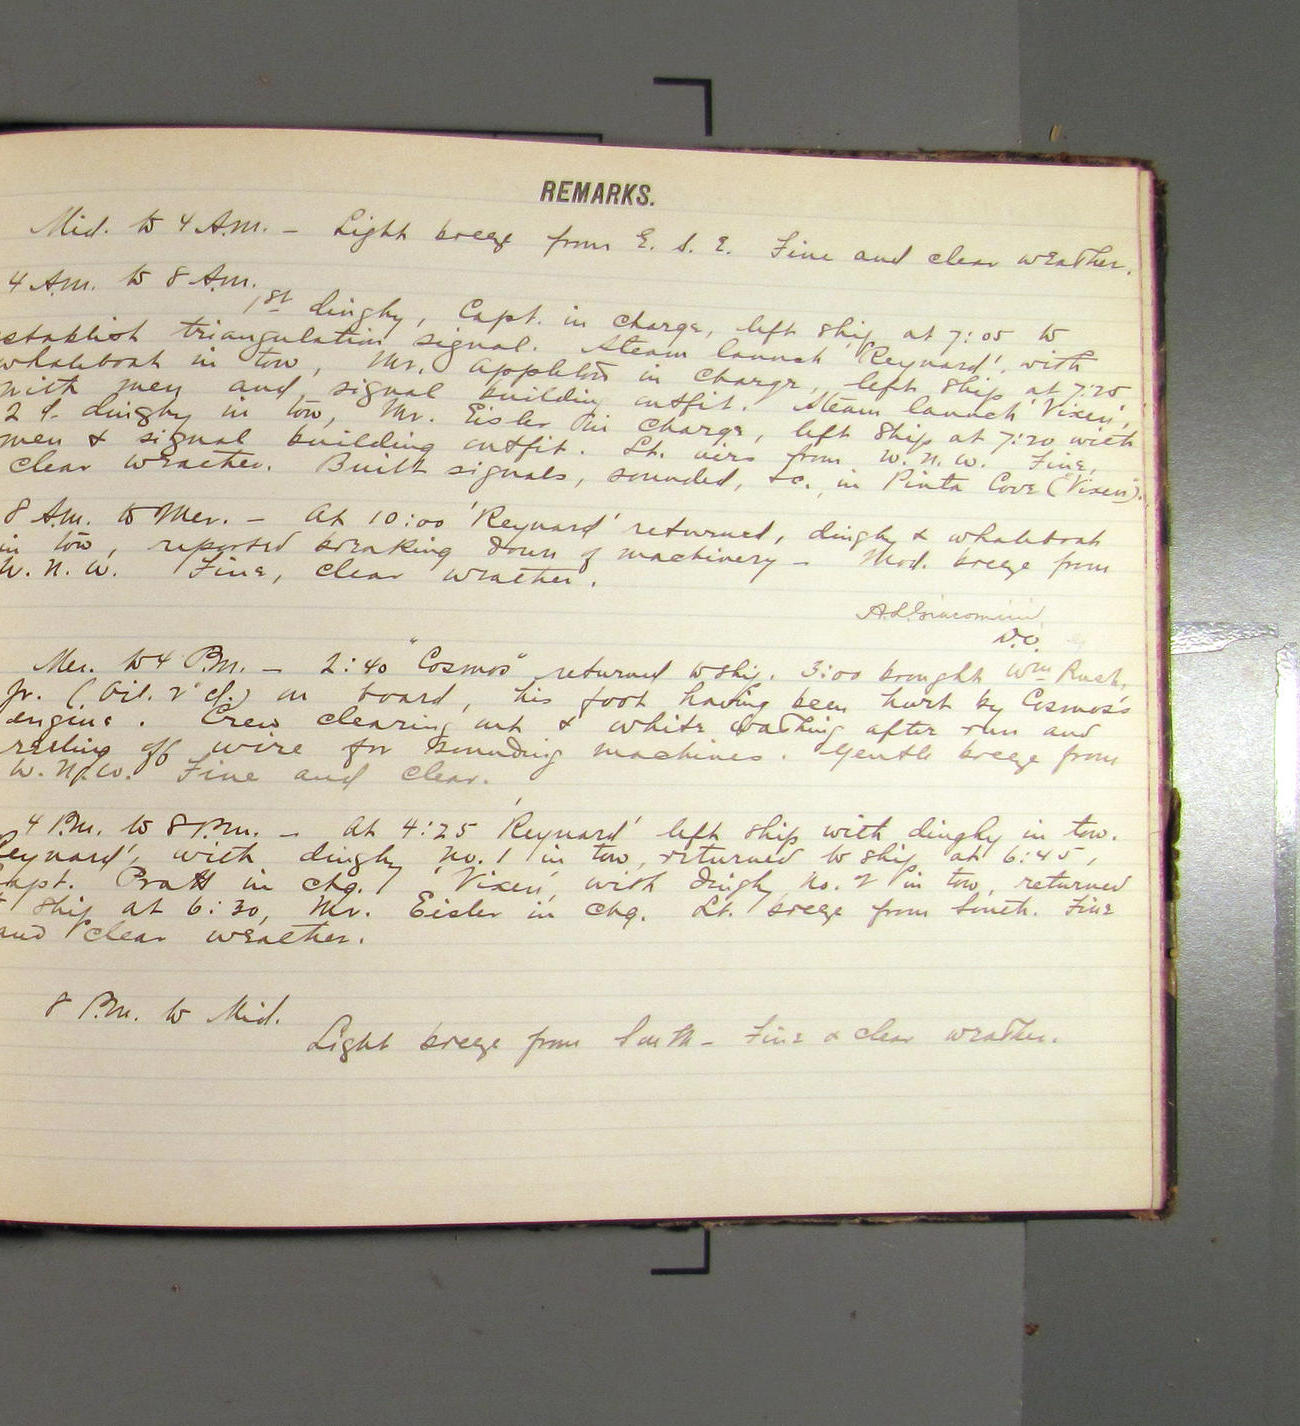 REMARKS.
Mid. to 4 A.m. - Light breeze from E. S. E. Fine and clear weather.
4 A.m. to 8 A.m.
1st dinghy, Capt. in charge, left ship at 7:05 to
establish triangulation signal. Steam launch 'Reynard', with
whaleboat in tow, Mr. Appleton in charge, left ship at 7:20
with men and signal building outfit. Steam launch 'Vixen',
2d dinghy in tow, Mr. Eisler in charge, left ship at 7:20 with
men & signal building outfit. Lt. airs from W. N. W. Fine,
clear weather. Built signals, sounded, &c., in Pinta Cove (Vixen).
8 A.m. to Mer. - At 10:00 'Reynard' returned, dinghy & whaleboat
in tow, reported breaking down of machinery - Mod. breeze from
W. N. W. Fine, clear weather.
A. L. Giacomini
D.O.
Mer. to 4 P.m. - 2:40 "Cosmos" returned to ship. 3:00 brought Wm
Jr. (Oil. 2" cl.) on board, his foot having been hurt by Cosmos's
engine. Crew clearing out & white washing after run and
reeling off wire for sounding machines. Gentle breeze from
W. N. W. Fine and clear.
4 P.m. to 8 P.m. - At 4:25 'Reynard' left ship with dinghy in tow.
Reynard', with dinghy No. 1 in tow, returned to ship at 6:45,
Capt. Pratt in chg. 'Vixen', with dinghy No. 2 in tow, returned
ship at 6:30, Mr. Eisler in chg. Lt. breeze from South. Fine
and clear weather.
8 P.m. to Mid.
Light breeze from South - Fine & clear weather.